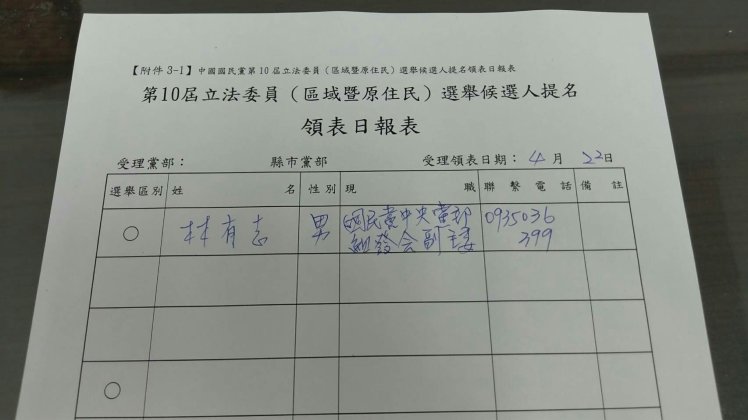 【附件 3-1】中國國民黨第 10 屆立法委員（區域暨原住民）選舉候選人提名領表日報表
第10屆立法委員（區域暨原住民）選舉候選人提名
領表日報表
受理黨部： 縣市黨部 受理領表日期：4月22日
選舉區別 姓名 性別 現職 聯繫電話 備註
○ 林有志 男 國民黨中央黨部 0935036
組發会副主委 399
○